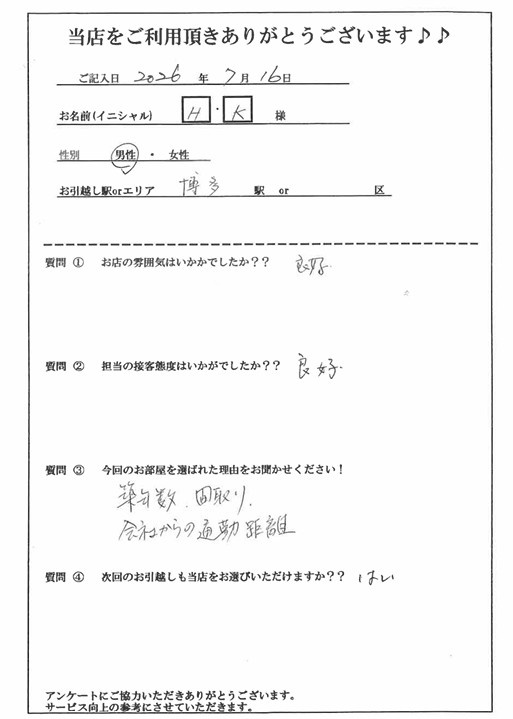 当店をご利用頂きありがとうございます♪♪
ご記入日 2026 年 7月 16日
お名前(イニシャル) H ・ K 様
性別 男性 ・ 女性
お引越し駅orエリア 博多 駅 or 区
質問 ① お店の雰囲気はいかかでしたか?? 良好.
質問 ② 担当の接客態度はいかがでしたか?? 良好.
質問 ③ 今回のお部屋を選ばれた理由をお聞かせください!
築年数、間取り、
会社からの通勤距離
質問 ④ 次回のお引越しも当店をお選びいただけますか?? はい
アンケートにご協力いただきありがとうございます。
サービス向上の参考にさせていただきます。